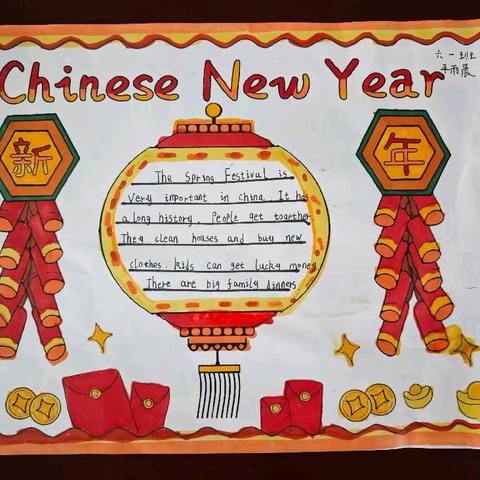 Chinese New Year
六一班
雨晨
新
年
The Spring Festival is
very important in china. It has
a long history. People get together
They clean houses and buy new
clothes. kids can get lucky money
There are big family dinners.